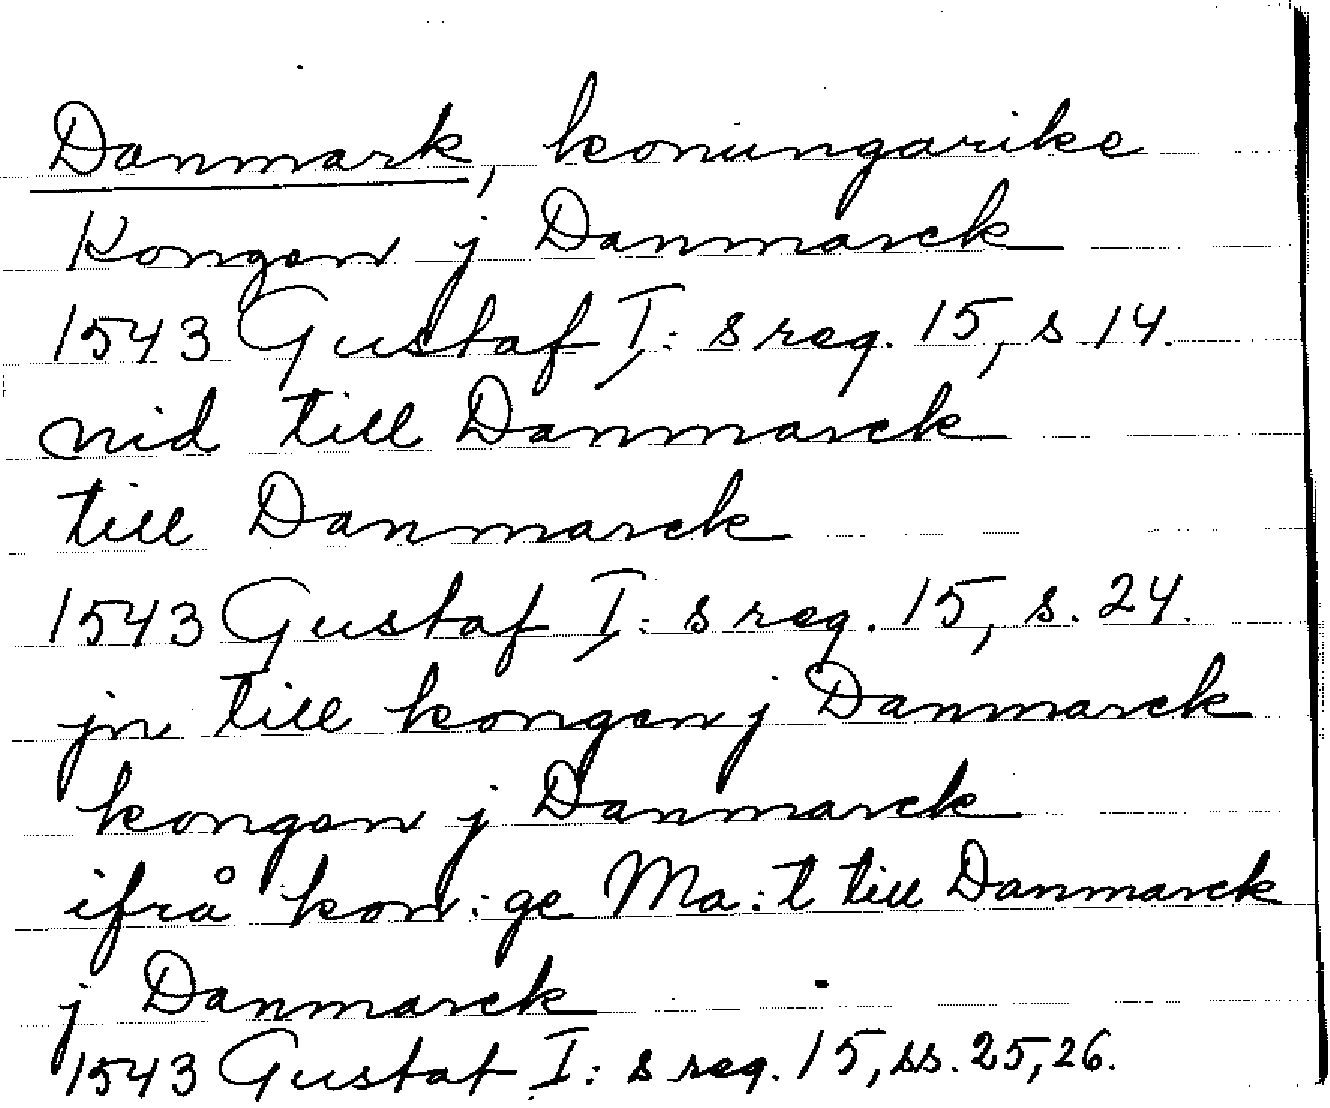 Danmark, konungarike
Kongen j Danmarck
1543 Gustaf I: s reg. 15, s 14.
nid till Danmarck
till Danmarck
1543 Gustaf I: s reg. 15, s. 24.
jn till kongen j Danmarck
kongen j Danmarck
ifrå kon: ge Ma:t till Danmarck
j Danmarck
1543 Gustaf I: s reg. 15, ss. 25, 26.